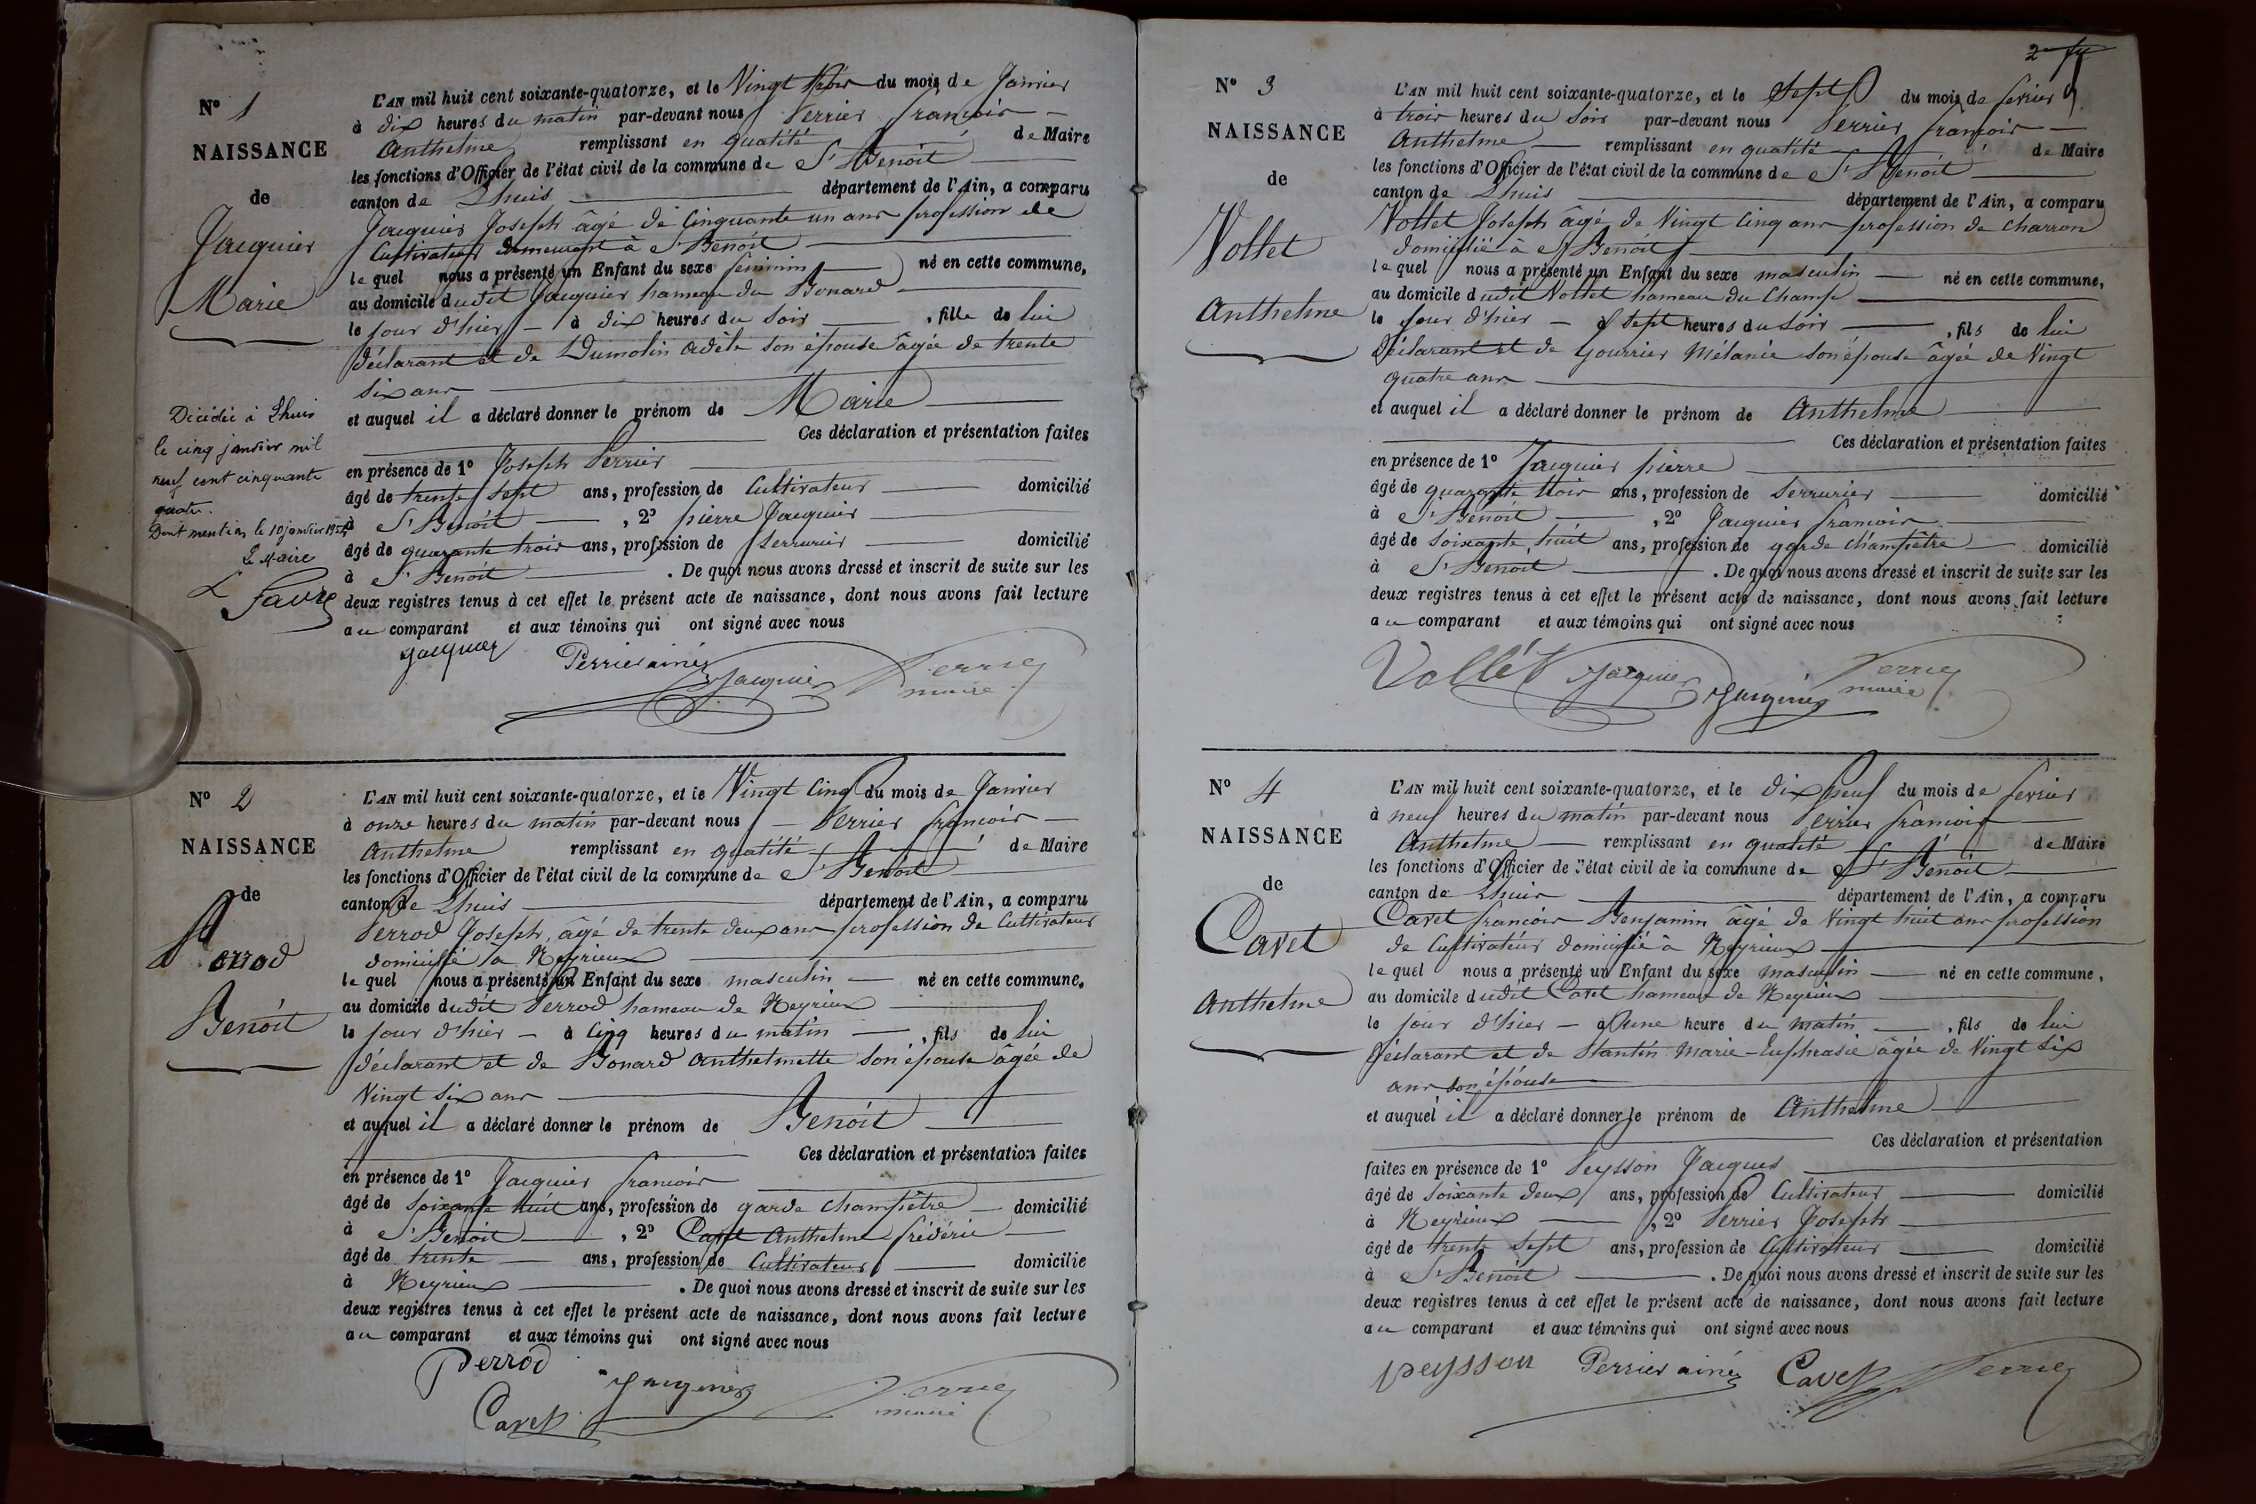 N° 1
NAISSANCE
de
Jacquier
Marie
L'AN mil huit cent soixante-quatorze, et le Vingt trois du mois de Janvier
à dix heures du matin par-devant nous Perrier françois
Anthelme remplissant en qualité de Maire
les fonctions d'Officier de l'état civil de la commune de St Benoit
canton de Lhuis département de l'Ain, a comparu
Jacquier Joseph âgé de Cinquante un ans profession de
Cultivateur demeurant à St Benoit
le quel nous a présenté un Enfant du sexe féminin né en cette commune,
au domicile dudit Jacquier hameau du Bonard
le jour d'hier à dix heures du soir , fille de lui
déclarant et de Dumolin Adèle son épouse âgée de trente
six ans
et auquel il a déclaré donner le prénom de Marie
Ces déclaration et présentation faites
en présence de 1° Joseph Perrier
âgé de trente sept ans, profession de Cultivateur domicilié
à St Benoit , 2° pierre Jacquier
âgé de quarante trois ans, profession de Serrurier domicilié
à St Benoit . De quoi nous avons dressé et inscrit de suite sur les
deux registres tenus à cet effet le présent acte de naissance, dont nous avons fait lecture
au comparant et aux témoins qui ont signé avec nous
Jacquier Perrier ainé Jacquier Perrier
maire
Décédée à Lhuis
le cinq janvier mil
neuf cent cinquante
quatre.
Dont mention le 10 janvier 1954
Le Maire
Favre
N° 2
NAISSANCE
de
Perrod
Benoit
L'AN mil huit cent soixante-quatorze, et le Vingt Cinq du mois de Janvier
à onze heures du matin par-devant nous Perrier françois
Anthelme remplissant en qualité de Maire
les fonctions d'Officier de l'état civil de la commune de St Benoit
canton de Lhuis département de l'Ain, a comparu
Perrod Joseph, âgé de trente deux ans profession de Cultivateur
domicilié à Neyrieux
le quel nous a présenté un Enfant du sexe masculin né en cette commune,
au domicile dudit Perrod hameau de Neyrieux
le jour d'hier à Cinq heures du matin , fils de lui
déclarant et de Bonard Anthelmette son épouse âgée de
Vingt six ans
et auquel il a déclaré donner le prénom de Benoit
Ces déclaration et présentation faites
en présence de 1° Jacquier françois
âgé de soixante huit ans, profession de garde champêtre domicilié
à St Benoit , 2° Cavet Anthelme frédéric
âgé de trente ans, profession de Cultivateur domicilié
à Neyrieux . De quoi nous avons dressé et inscrit de suite sur les
deux registres tenus à cet effet le présent acte de naissance, dont nous avons fait lecture
au comparant et aux témoins qui ont signé avec nous
Perrod Jacquier Perrier
Cavet maire
2
N° 3
NAISSANCE
de
Vollet
Anthelme
L'AN mil huit cent soixante-quatorze, et le Sept du mois de février
à trois heures du soir par-devant nous Perrier françois
Anthelme remplissant en qualité de Maire
les fonctions d'Officier de l'état civil de la commune de St Benoit
canton de Lhuis département de l'Ain, a comparu
Vollet Joseph âgé de Vingt Cinq ans profession de charron
domicilié à St Benoit
le quel nous a présenté un Enfant du sexe masculin né en cette commune,
au domicile dudit Vollet hameau du Champ
le jour d'hier à sept heures du soir , fils de lui
Déclarant et de Gourrier Mélanie son épouse âgée de Vingt
quatre ans
et auquel il a déclaré donner le prénom de Anthelme
Ces déclaration et présentation faites
en présence de 1° Jacquier pierre
âgé de quarante trois ans, profession de Serrurier domicilié
à St Benoit , 2° Jacquier françois
âgé de soixante huit ans, profession de garde champêtre domicilié
à St Benoit . De quoi nous avons dressé et inscrit de suite sur les
deux registres tenus à cet effet le présent acte de naissance, dont nous avons fait lecture
au comparant et aux témoins qui ont signé avec nous
Vollét Jacquier Jacquier Perrier
maire
N° 4
NAISSANCE
de
Cavet
Anthelme
L'AN mil huit cent soixante-quatorze, et le dix neuf du mois de février
à neuf heures du matin par-devant nous Perrier françois
Anthelme remplissant en qualité de Maire
les fonctions d'Officier de l'état civil de la commune de St Benoit
canton de Lhuis département de l'Ain, a comparu
Cavet françois Benjamin âgé de Vingt huit ans profession
de Cultivateur domicilié à Neyrieux
le quel nous a présenté un Enfant du sexe masculin né en cette commune,
au domicile dudit Cavet hameau de Neyrieux
le jour d'hier à Une heure du matin , fils de lui
Déclarant et de Stantin Marie-Euphrasie âgée de Vingt Six
ans son épouse
et auquel il a déclaré donner le prénom de Anthelme
Ces déclaration et présentation
faites en présence de 1° Peysson Jacques
âgé de soixante deux ans, profession de Cultivateur domicilié
à Neyrieux , 2° Perrier Joseph
âgé de trente sept ans, profession de Cultivateur domicilié
à St Benoit . De quoi nous avons dressé et inscrit de suite sur les
deux registres tenus à cet effet le présent acte de naissance, dont nous avons fait lecture
au comparant et aux témoins qui ont signé avec nous
peysson Perrier ainé Cavet Perrier